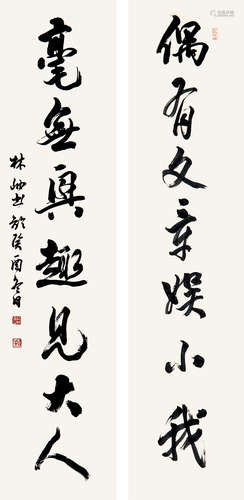 偶有文章娱小我
毫無興趣見大人
林岫书於癸酉冬日